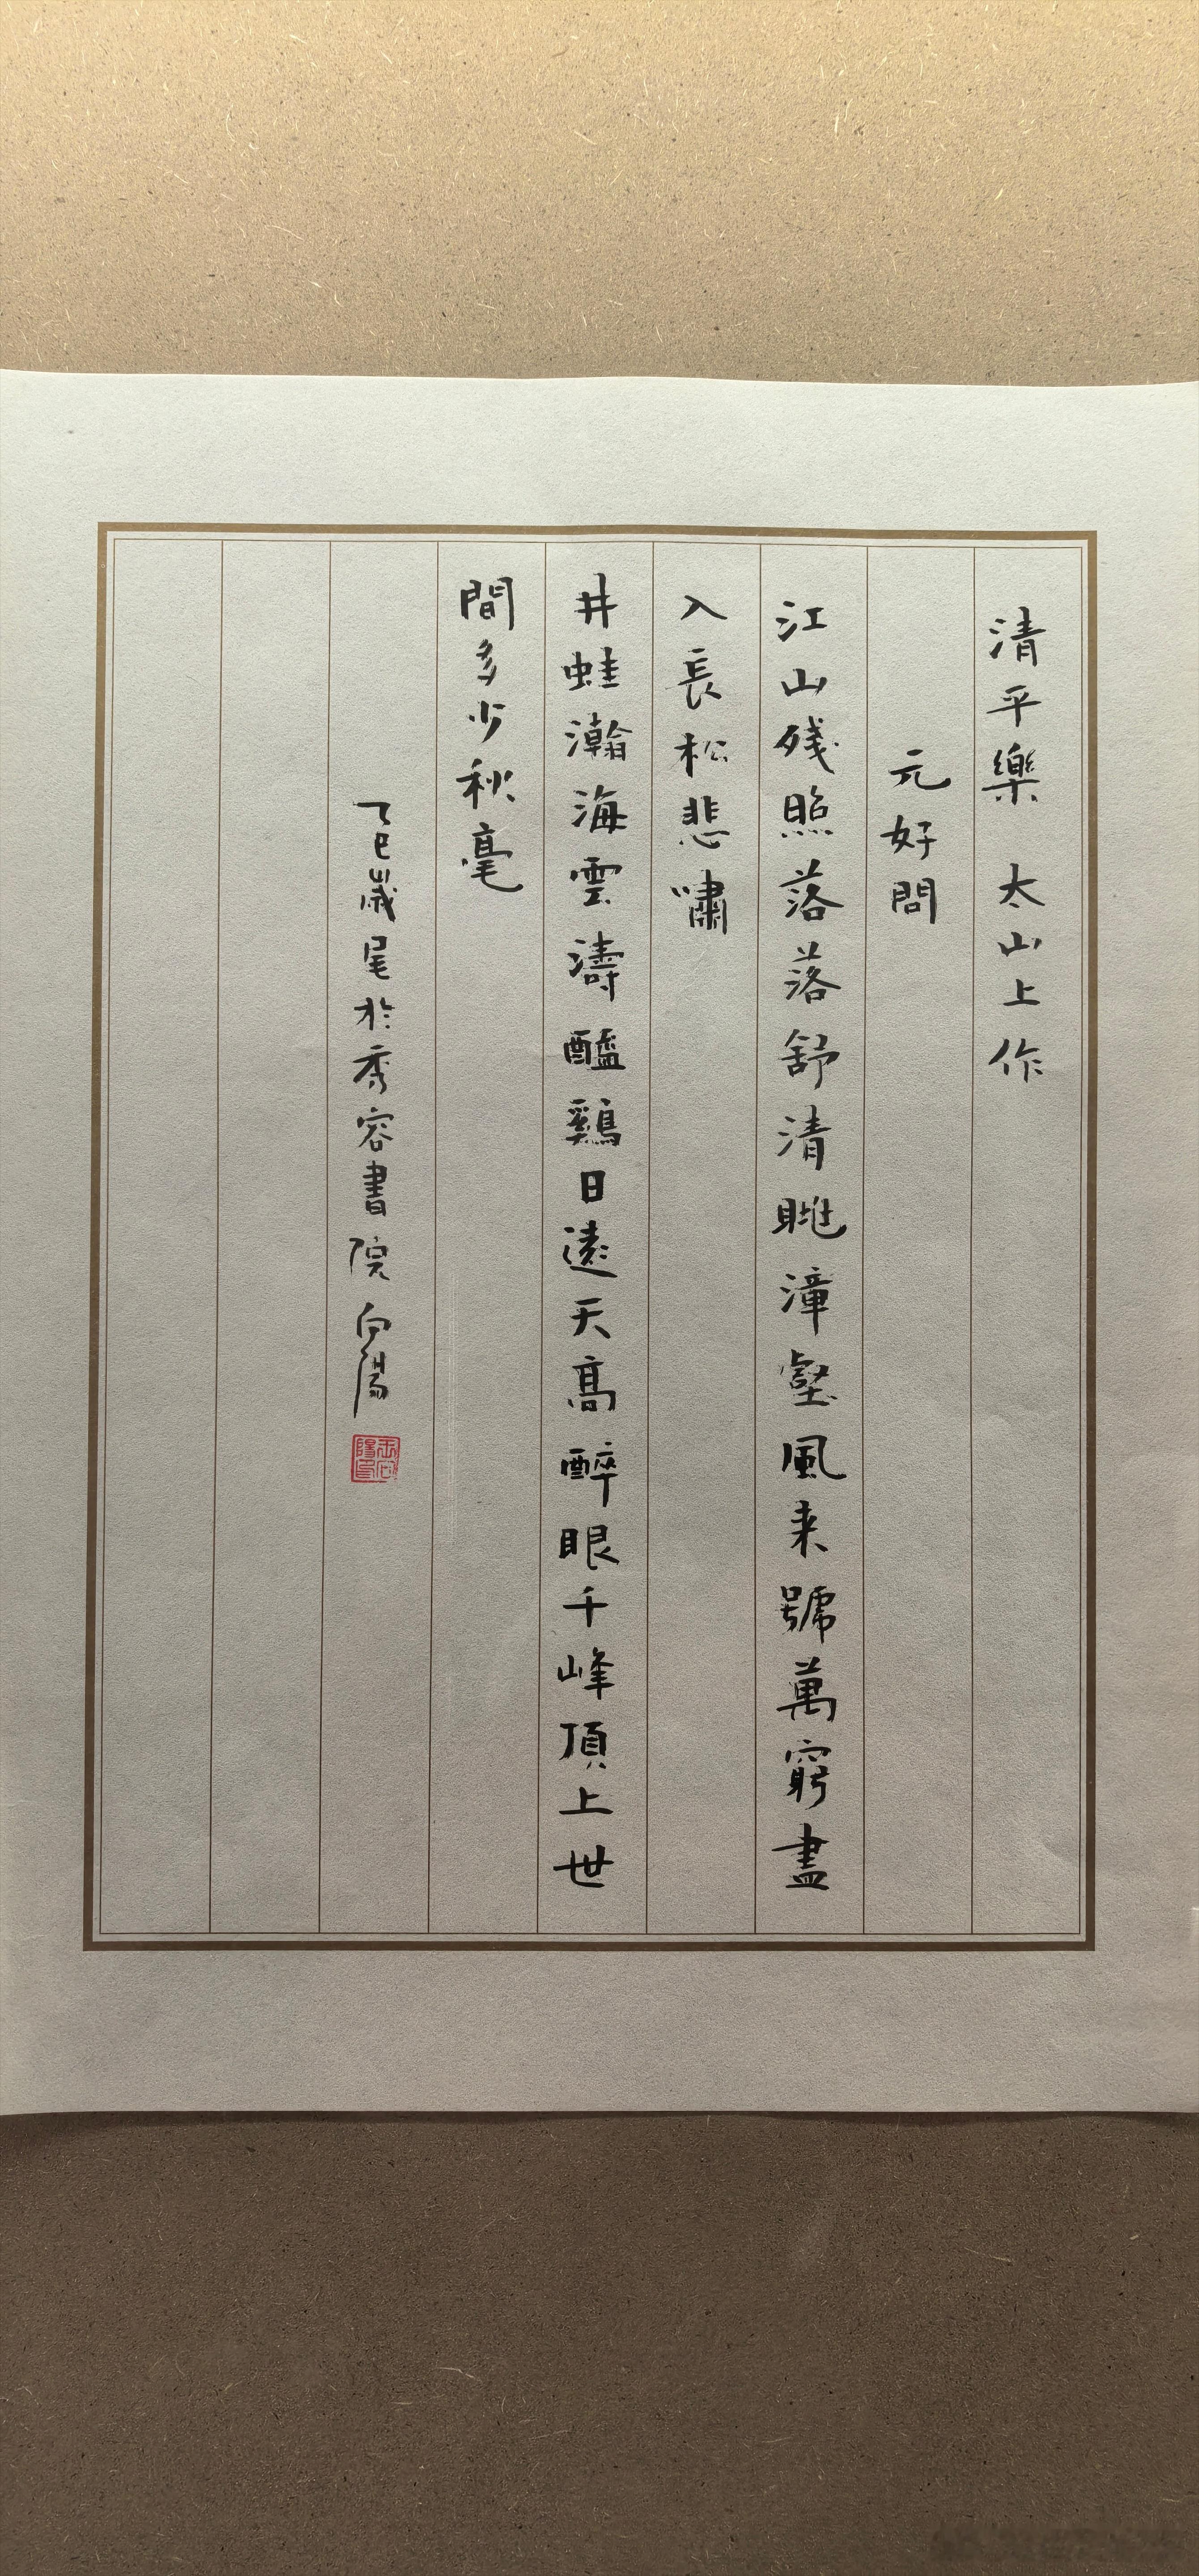 清平樂 太山上作
元好問
江山殘照落落舒清眺漳壑風来號萬竅盡
入長松悲嘯
井蛙瀚海雲濤醯鷄日遠天高醉眼千峰頂上世
間多少秋毫
乙巳歲尾於秀容書院 向陽